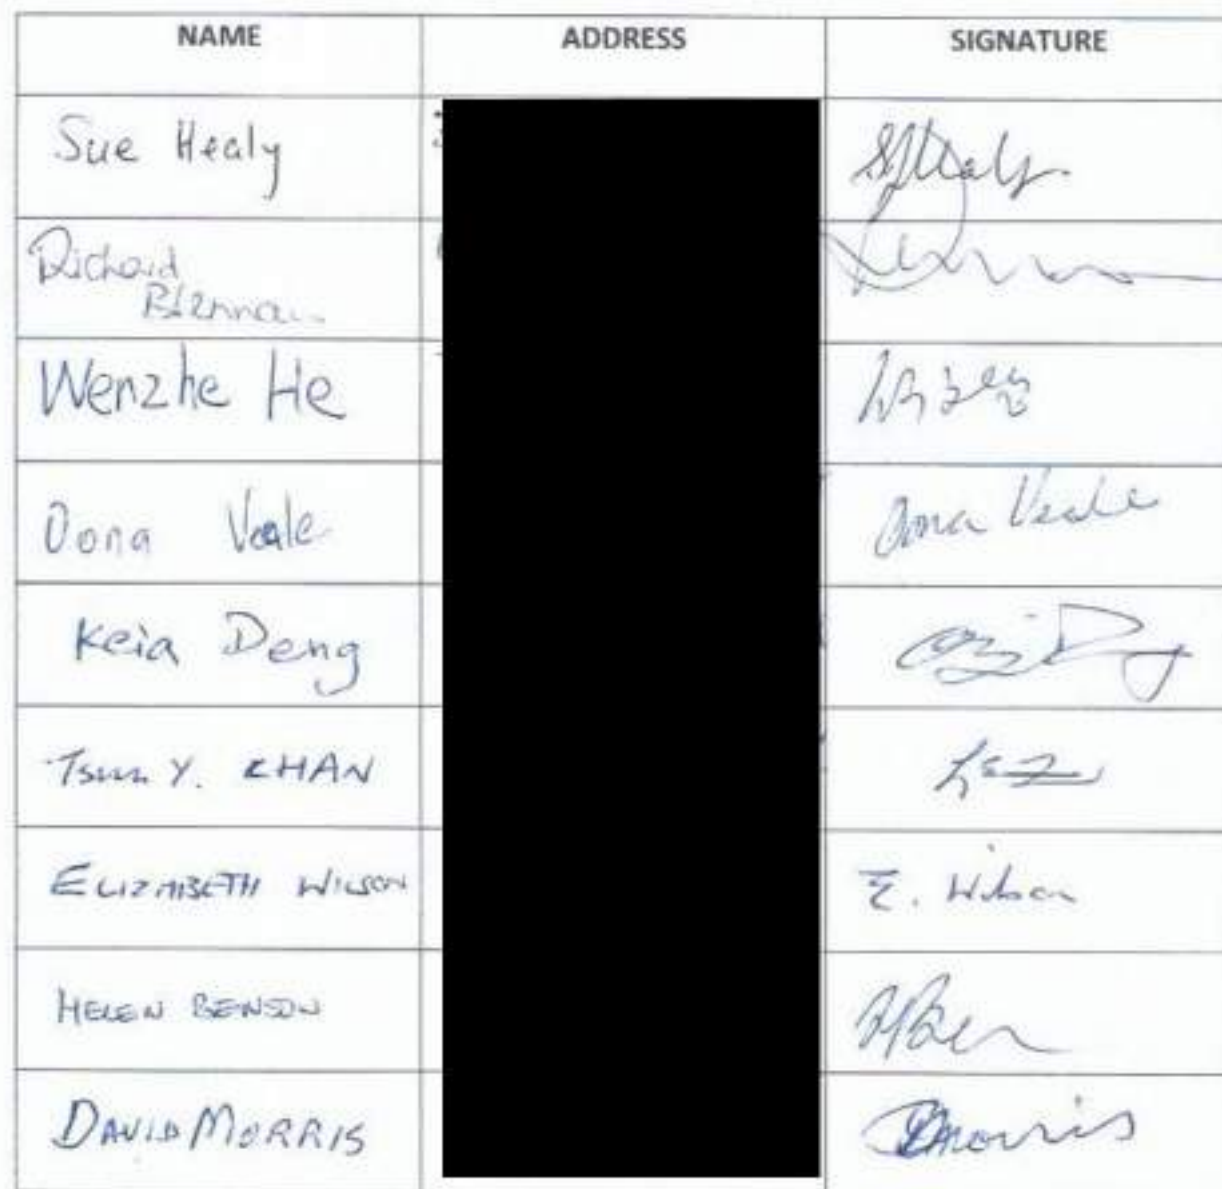 NAME ADDRESS SIGNATURE
Sue Healy
Richard
Brennan
Wenzhe He
Oona Veale Oona Veale
Keia Deng
Tsun Y. CHAN
ELIZABETH WILSON E. Wilson
HELEN BENSON
DAVID MORRIS DMorris